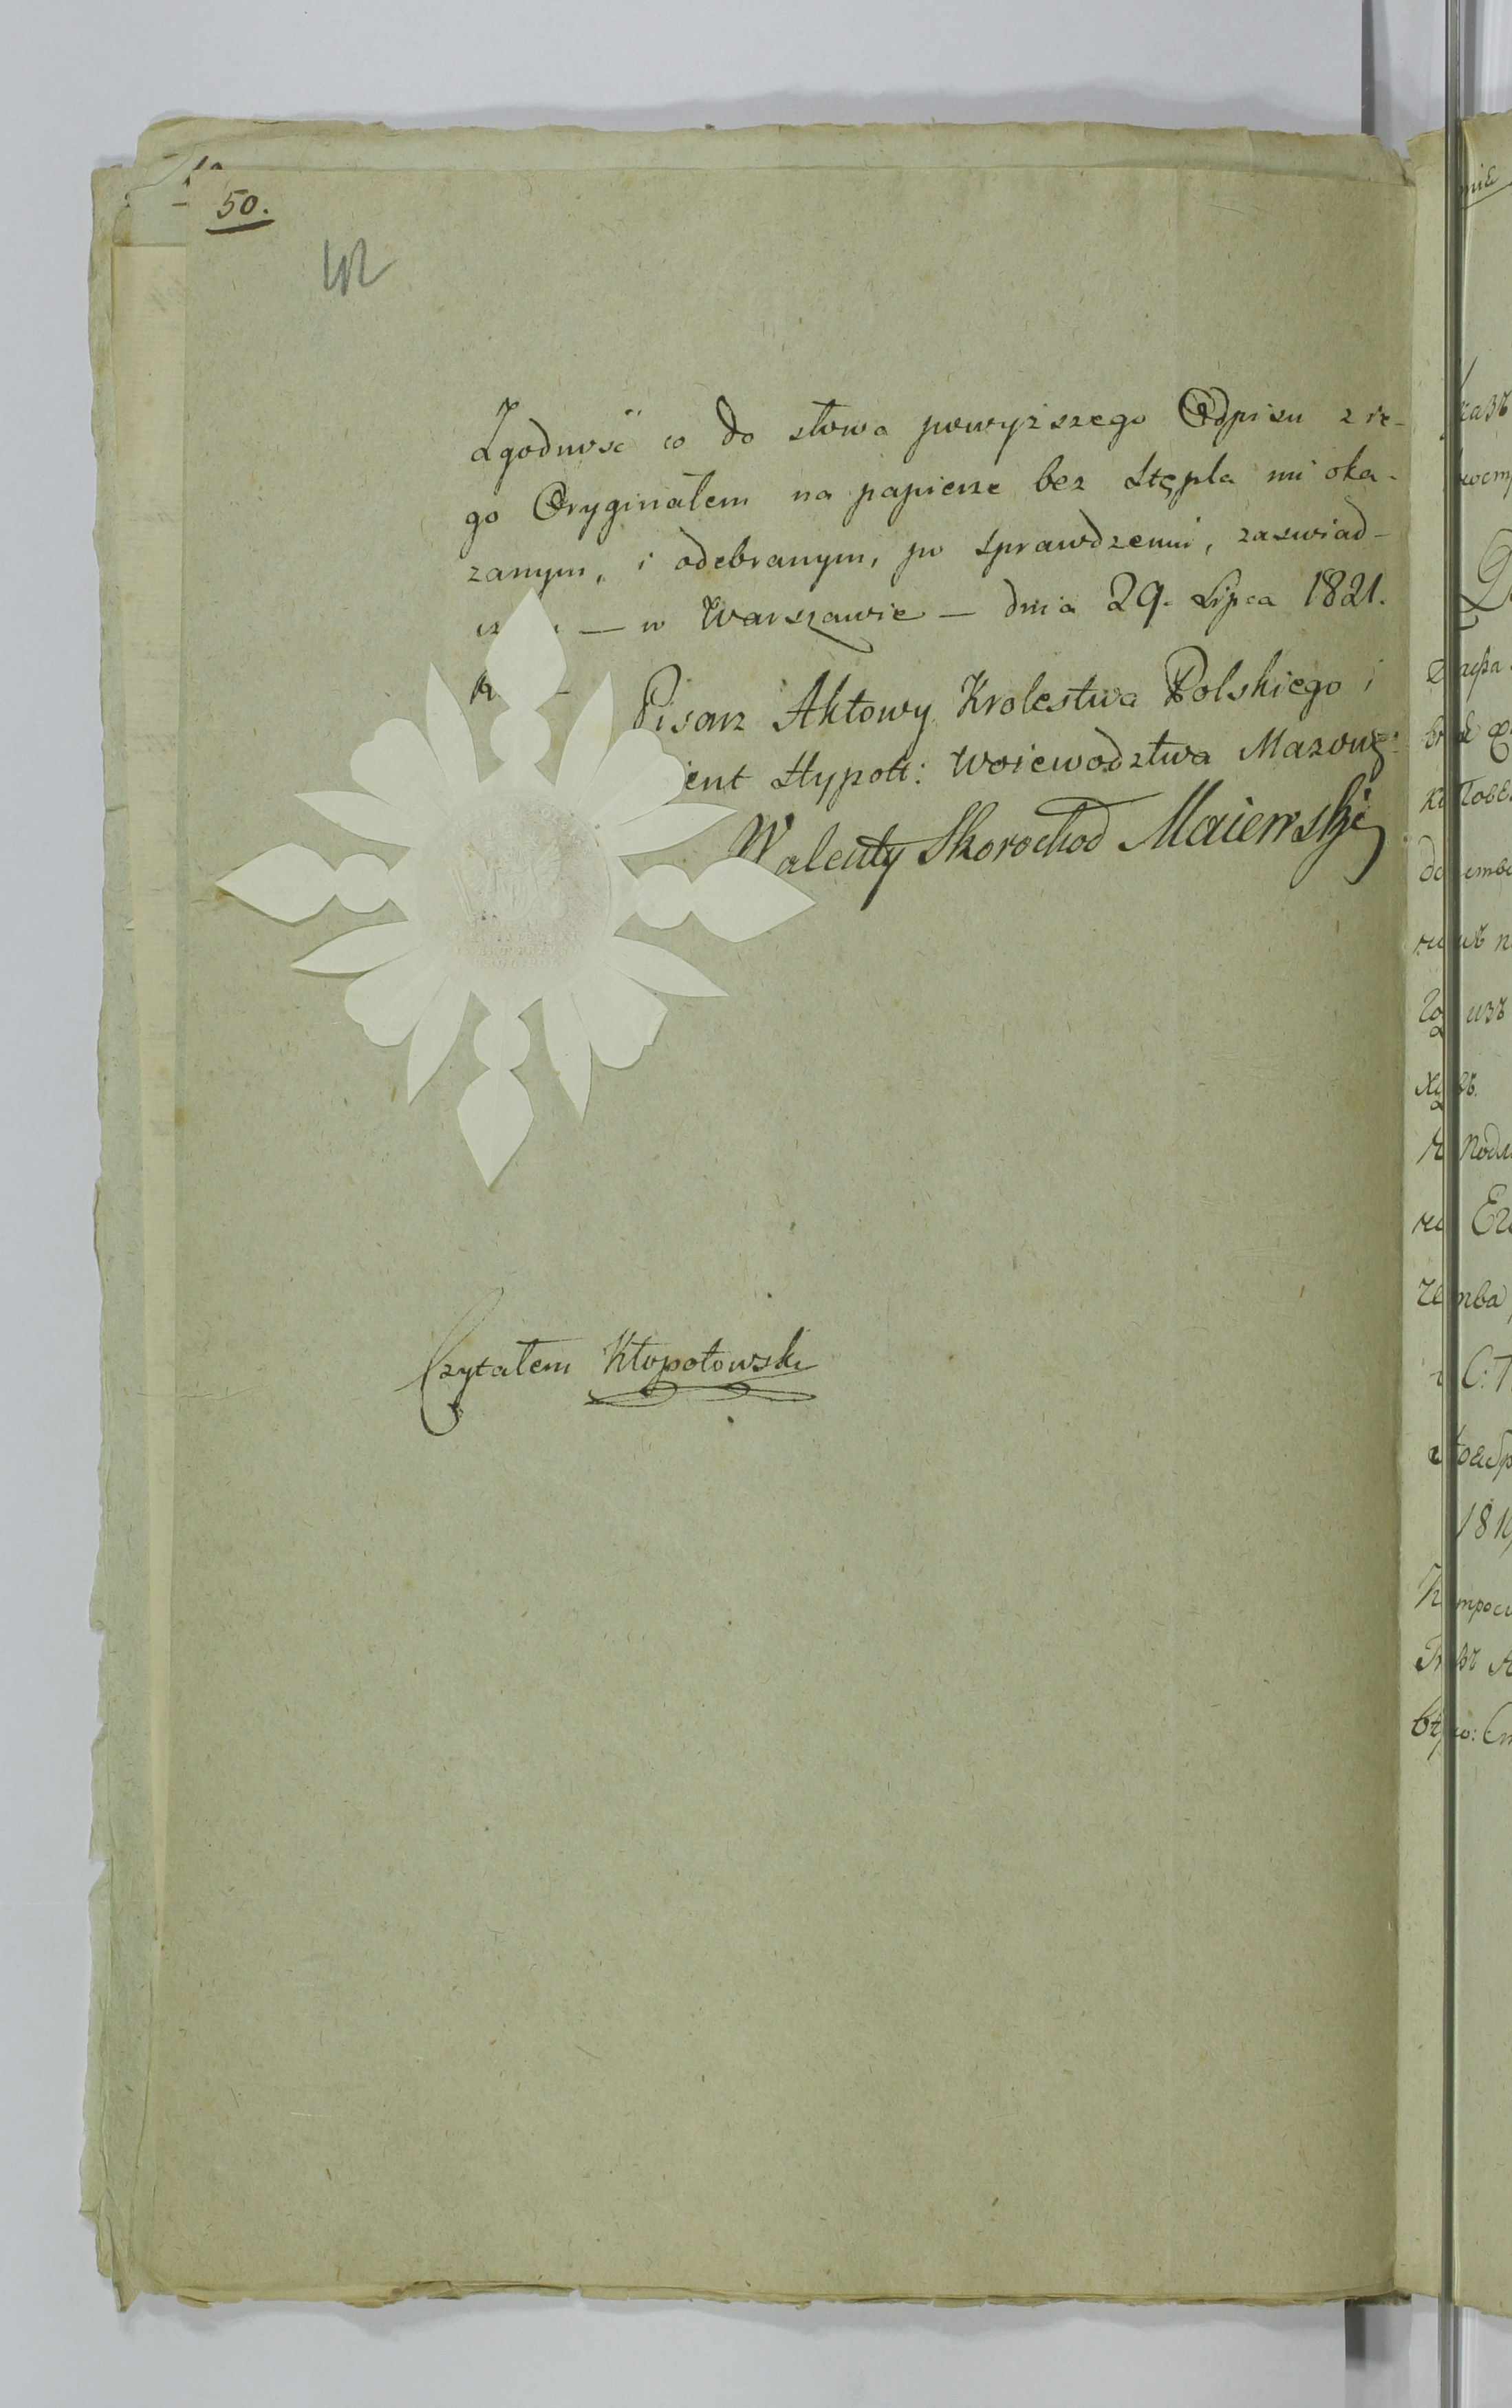 50.
Zgodność co do słowa powyższego Odpisu z ie-
go Oryginałem na papierze bez stępla mi oka-
zanym, i odebranym, po sprawdzeniu, zaswiad-
— w Warszawie — dnia 29. Lipca 1821.
Pisarz Aktowy Krolestwa Polskiego i
ient Hypott: Woiewodztwa Mazow:
Walenty Skorochod Maiewski
Czytałem Kłopotowski